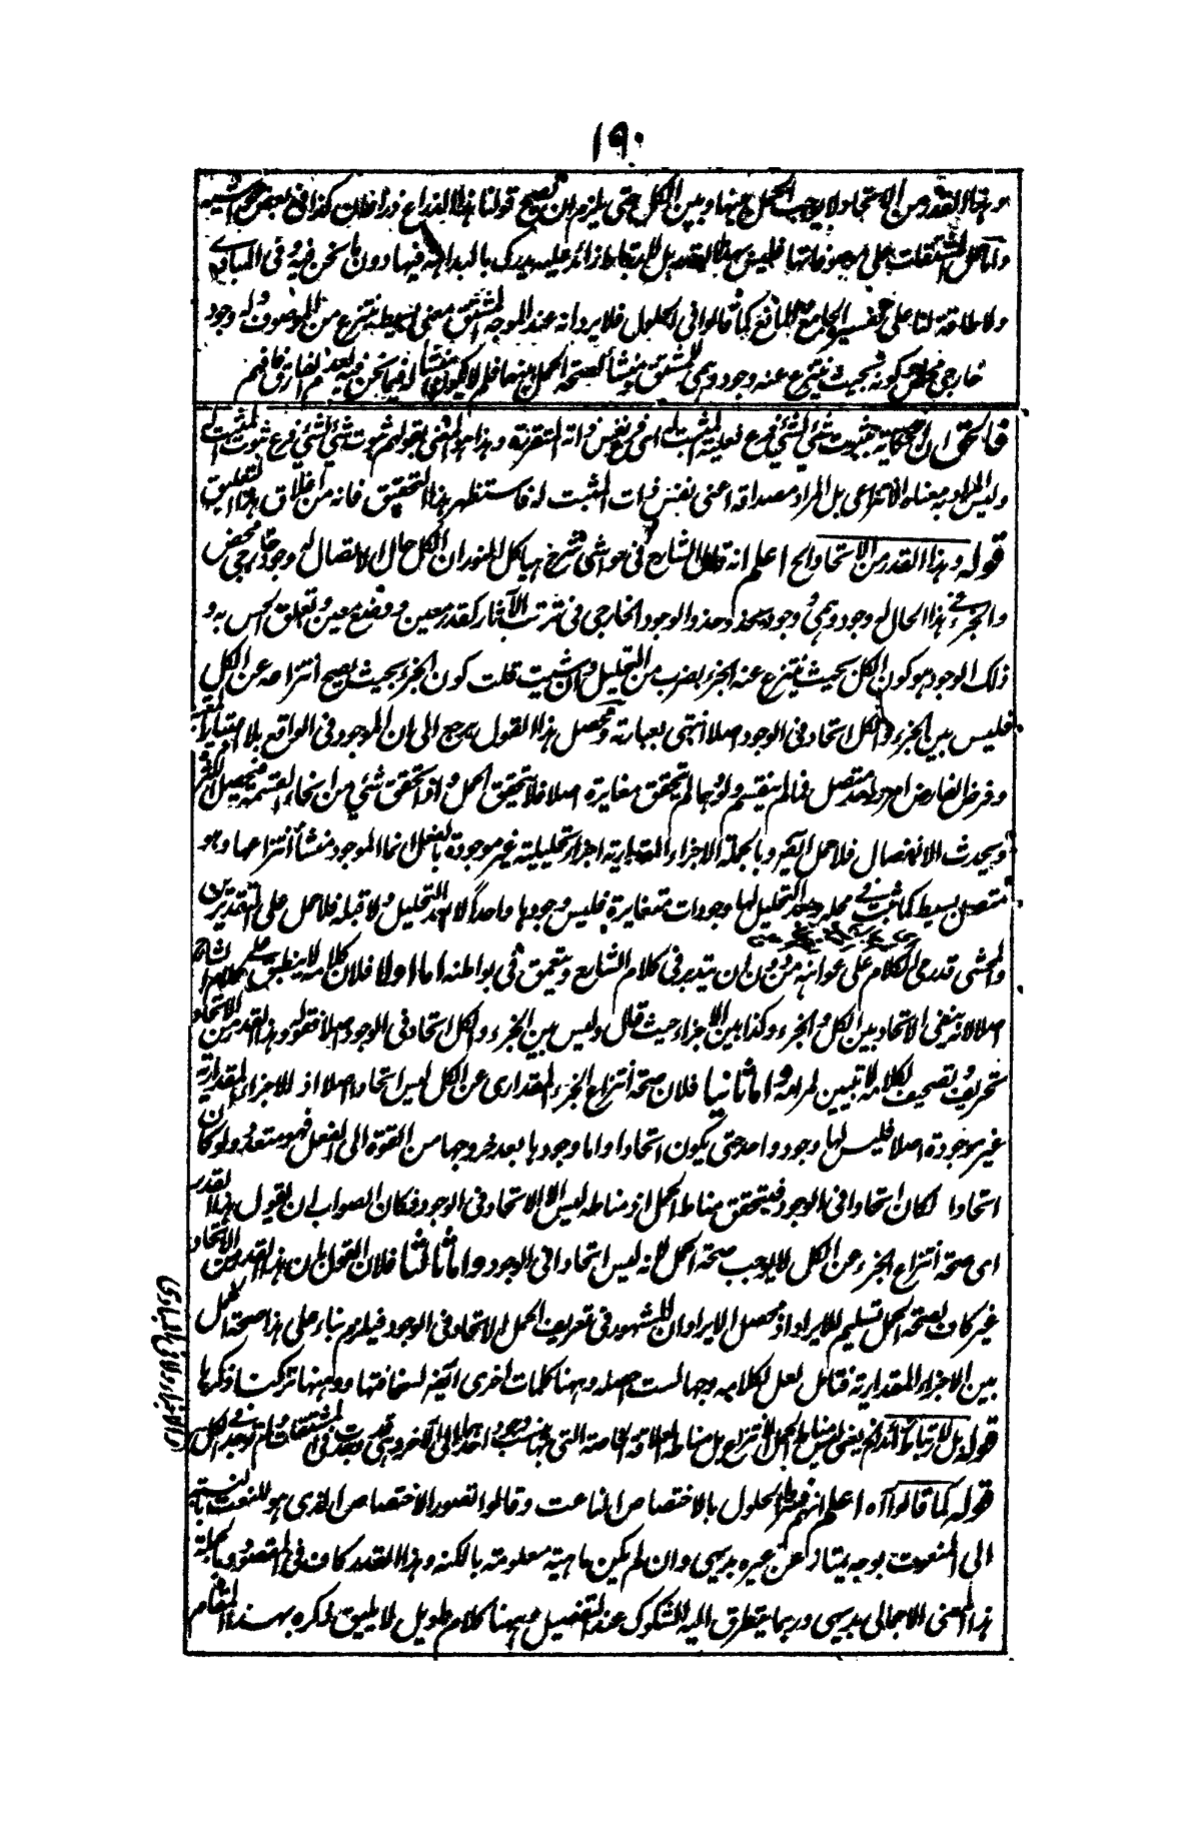 ١٩٠
وهذا القدر من الاتحاد لا يوجب الحمل بينها وبين الكل حتى يلزم ان يصح قولنا هذا الذراع ذراعان كذا في بعض
واما حمل المشتقات على موصوفاتها فليس بهذا القدر بل للارتباط زائد عليه يدرك بالبداهة فيها دون ما نحن فيه وفي المبادي
ولا طاقة لنا على تفسيره الجامع المانع كما قالوا في الحلول فلا يرد انه عند الموجه المشتق معنى بسيط ينتزع من الموصوف له وجود
خارجي محض كونه بحيث ينتزع عنه وجود وهمي للمشتق ومنشأ لصحة الحمل بينهما فلم لا يكون منشأ له فيما نحن فيه لعدم الفارق فافهم
فالحق ان الحكاية بثبوت شيء لشيء فرع لفعلية المثبت له اي فرع نفس ذاته المتقررة وهذا هو المعنى بقولهم ثبوت شيء لشيء فرع ثبوت المثبت له
وليس المراد به معناه الانتزاعي بل المراد مصداقه اعني نفس ذات المثبت له فاستظهر بهذا التحقيق فانه من اغلاق هذا التعليق
قوله وهذا القدر من الاتحاد الخ اعلم انه قال الشارح في حواشي شرح هياكل النور ان الكل حال الاتصال له وجود خارجي محض
والجزء في هذا الحال له وجود وهمي وجود يحذو حذو الوجود الخارجي في ترتب الآثار كقدر معين ووضع معين وتعلق الحس به و
ذلك الوجود هو كون الكل بحيث ينتزع عنه الجزء بضرب من التحليل وان شئت قلت كون الجزء بحيث يصح انتزاعه عن الكل
فليس بين الجزء والكل اتحاد في الوجود اصلا انتهى بعبارته ومحصل هذا القول يرجع الى ان الموجود في الواقع بلا اعتبار معتبر
وفرض فارض امر واحد متصل فما لم ينقسم ولو وهما لم يتحقق مغايرة اصلا فلا يتحقق الحمل واذا تحقق شيء من انحاء القسمة يحصل التكثر
ويحدث الانفصال فلا حمل ايضا وبالجملة الاجزاء المقدارية اجزاء تحليلية غير موجودة بالفعل انما الموجود منشأ انتزاعها وهو
متصل بسيط كما ثبت في محله وبعد التحليل لها وجودات متغايرة فليس وجودها واحدا لا بعد التحليل ولا قبله فلا حمل على التقديرين
والمحشي قد رمى الكلام على عواهنه من دون ان يتدبر في كلام الشارح ويتعمق في بواطنه اما اولا فلان كلامه لا ينطبق على كلام الشارح
اصلا لانه ينفي الاتحاد بين الكل والجزء وكذا بين الاجزاء حيث قال وليس بين الجزء والكل اتحاد في الوجود اصلا فقوله وهذا القدر من الاتحاد
تحريف وتصحيف لكلامه لا تبيين لمرامه واما ثانيا فلان صحة انتزاع الجزء المقداري عن الكل ليس اتحادا اصلا اذ للاجزاء المقدارية
غير موجودة اصلا فليس لها وجود واحد حتى يكون اتحادا واما وجودها بعد خروجها من القوة الى الفعل فهو متعدد ولو كان
اتحادا لكان اتحادا في الوجود فيتحقق مناط الحمل اذ مناطه ليس الا الاتحاد في الوجود فكان الصواب ان يقول هذا القدر
اي صحة انتزاع الجزء عن الكل لا يوجب صحة الحمل لانه ليس اتحادا في الوجود واما ثالثا فلان القول بان هذا القدر من الاتحاد
غير كاف لصحة الحمل تسليم للايراد اذ محصل الايراد ان المشهور في تعريف الحمل الاتحاد في الوجود فيلزم بناء على هذا صحة الحمل
بين الاجزاء المقدارية فتأمل لعل لكلامه وجها لست احصله وههنا كلمات اخرى لسخافتها ووهنها تركت ذكرها
قوله بل للارتباط زائد الخ يعني ليس مناط الحمل الانتزاع بل مناطه العلاقة الخاصة التي بها ينسب وجود احدهما الى الآخر وهي قد وجدت في المشتقات ولم توجد في الكل
قوله كما قالوا اه اعلم انهم فسروا الحلول بالاختصاص الناعت وقالوا تصور الاختصاص الذي هو للنعت بالنسبة
الى المنعوت بوجه يمتاز عن غيره بديهي وان لم يكن ماهيته معلومة بالكنه وهذا القدر كاف في المقصود وبالجملة
هذا المعنى الاجمالي بديهي وربما يتطرق اليه الشكوك عند التفصيل وههنا كلام طويل لا يليق ذكره بهذا المقام